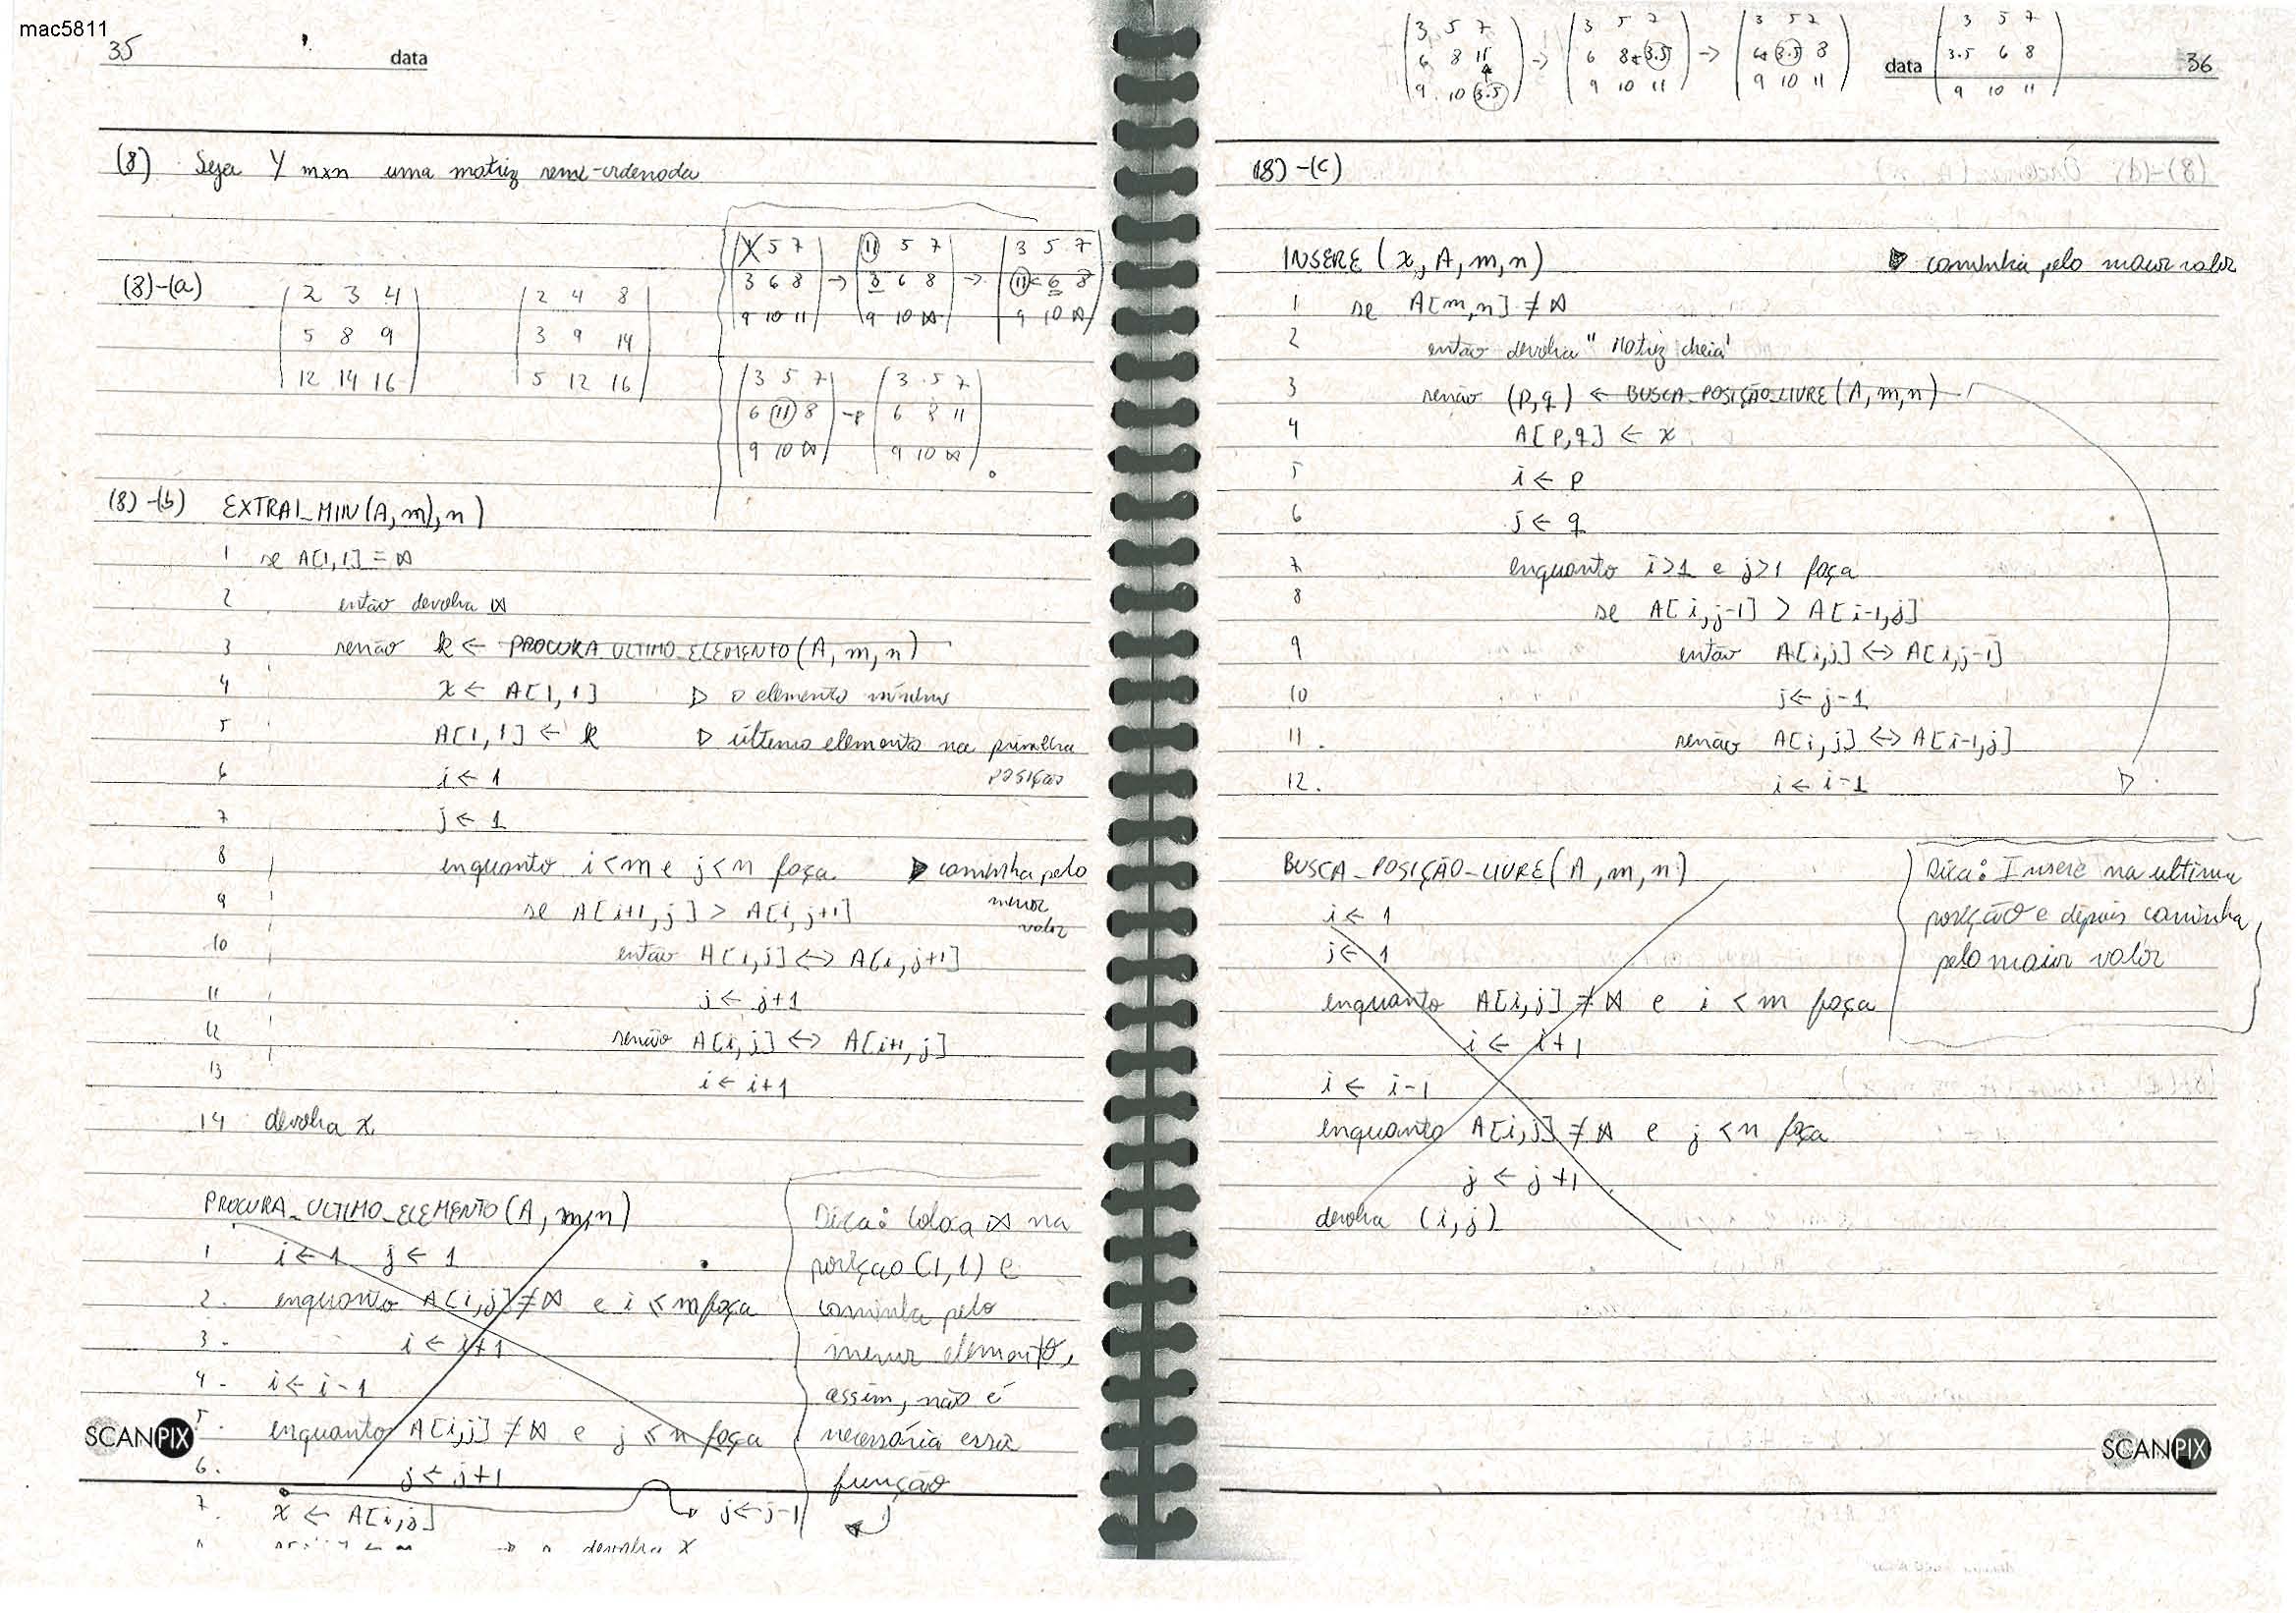 mac5811
35
data
(8) Seja Y mxn uma matriz semi-ordenada
(8)-(a)
2 3 4
5 8 9
12 14 16
2 4 8
3 9 14
5 12 16
X 5 7
3 6 8
9 10 11
→
11 5 7
3 6 8
9 10 ∞
→
3 5 7
11 6 8
9 10 ∞
3 5 7
6 11 8
9 10 ∞
→
3 5 7
6 8 11
9 10 ∞
(8)-(b) EXTRAI_MIN(A, m, n)
1 se A[1,1] = ∞
2 então devolva ∞
3 senão k ← PROCURA_ULTIMO_ELEMENTO(A, m, n)
4 x ← A[1,1] ▷ o elemento mínimo
5 A[1,1] ← k ▷ último elemento na primeira
posição
6 i ← 1
7 j ← 1
8 enquanto i < m e j < n faça ▷ caminha pelo
menor
valor
9 se A[i+1, j] > A[i, j+1]
10 então A[i,j] ↔ A[i,j+1]
11 j ← j+1
12 senão A[i,j] ↔ A[i+1,j]
13 i ← i+1
14 devolva x
PROCURA_ULTIMO_ELEMENTO(A, m,n)
1 i ← 1 j ← 1
2. enquanto A[i,j] ≠ ∞ e i ≤ m faça
3. i ← i+1
4. i ← i-1
5. enquanto A[i,j] ≠ ∞ e j ≤ n faça
6. j ← j+1
7. x ← A[i,j]
j ← j-1
devolva x
Dica: Coloca ∞ na
posição (1,1) e
caminha pelo
menor elemento,
assim, não é
necessária essa
função
SCANPIX
3 5 7
6 8 11
9 10 3.5
→
3 5 7
6 8 3.5
9 10 11
→
3 5 7
6 3.5 8
9 10 11
3 5 7
3.5 6 8
9 10 11
data
36
(8)-(c)
INSERE (x, A, m, n) ▷ caminha pelo maior valor
1 se A[m,n] ≠ ∞
2 então devolva "Matriz cheia"
3 senão (p,q) ← BUSCA_POSIÇÃO_LIVRE(A, m, n)
4 A[p,q] ← x
5 i ← p
6 j ← q
7 enquanto i>1 e j>1 faça
8 se A[i,j-1] > A[i-1,j]
9 então A[i,j] ↔ A[i,j-1]
10 j ← j-1
11. senão A[i,j] ↔ A[i-1,j]
12. i ← i-1
BUSCA_POSIÇÃO_LIVRE(A, m, n)
i ← 1
j ← 1
enquanto A[i,j] ≠ ∞ e i < m faça
i ← i+1
i ← i-1
enquanto A[i,j] ≠ ∞ e j < n faça
j ← j+1
devolva (i,j)
Dica: Insere na ultima
posição e depois caminha
pelo maior valor
SCANPIX